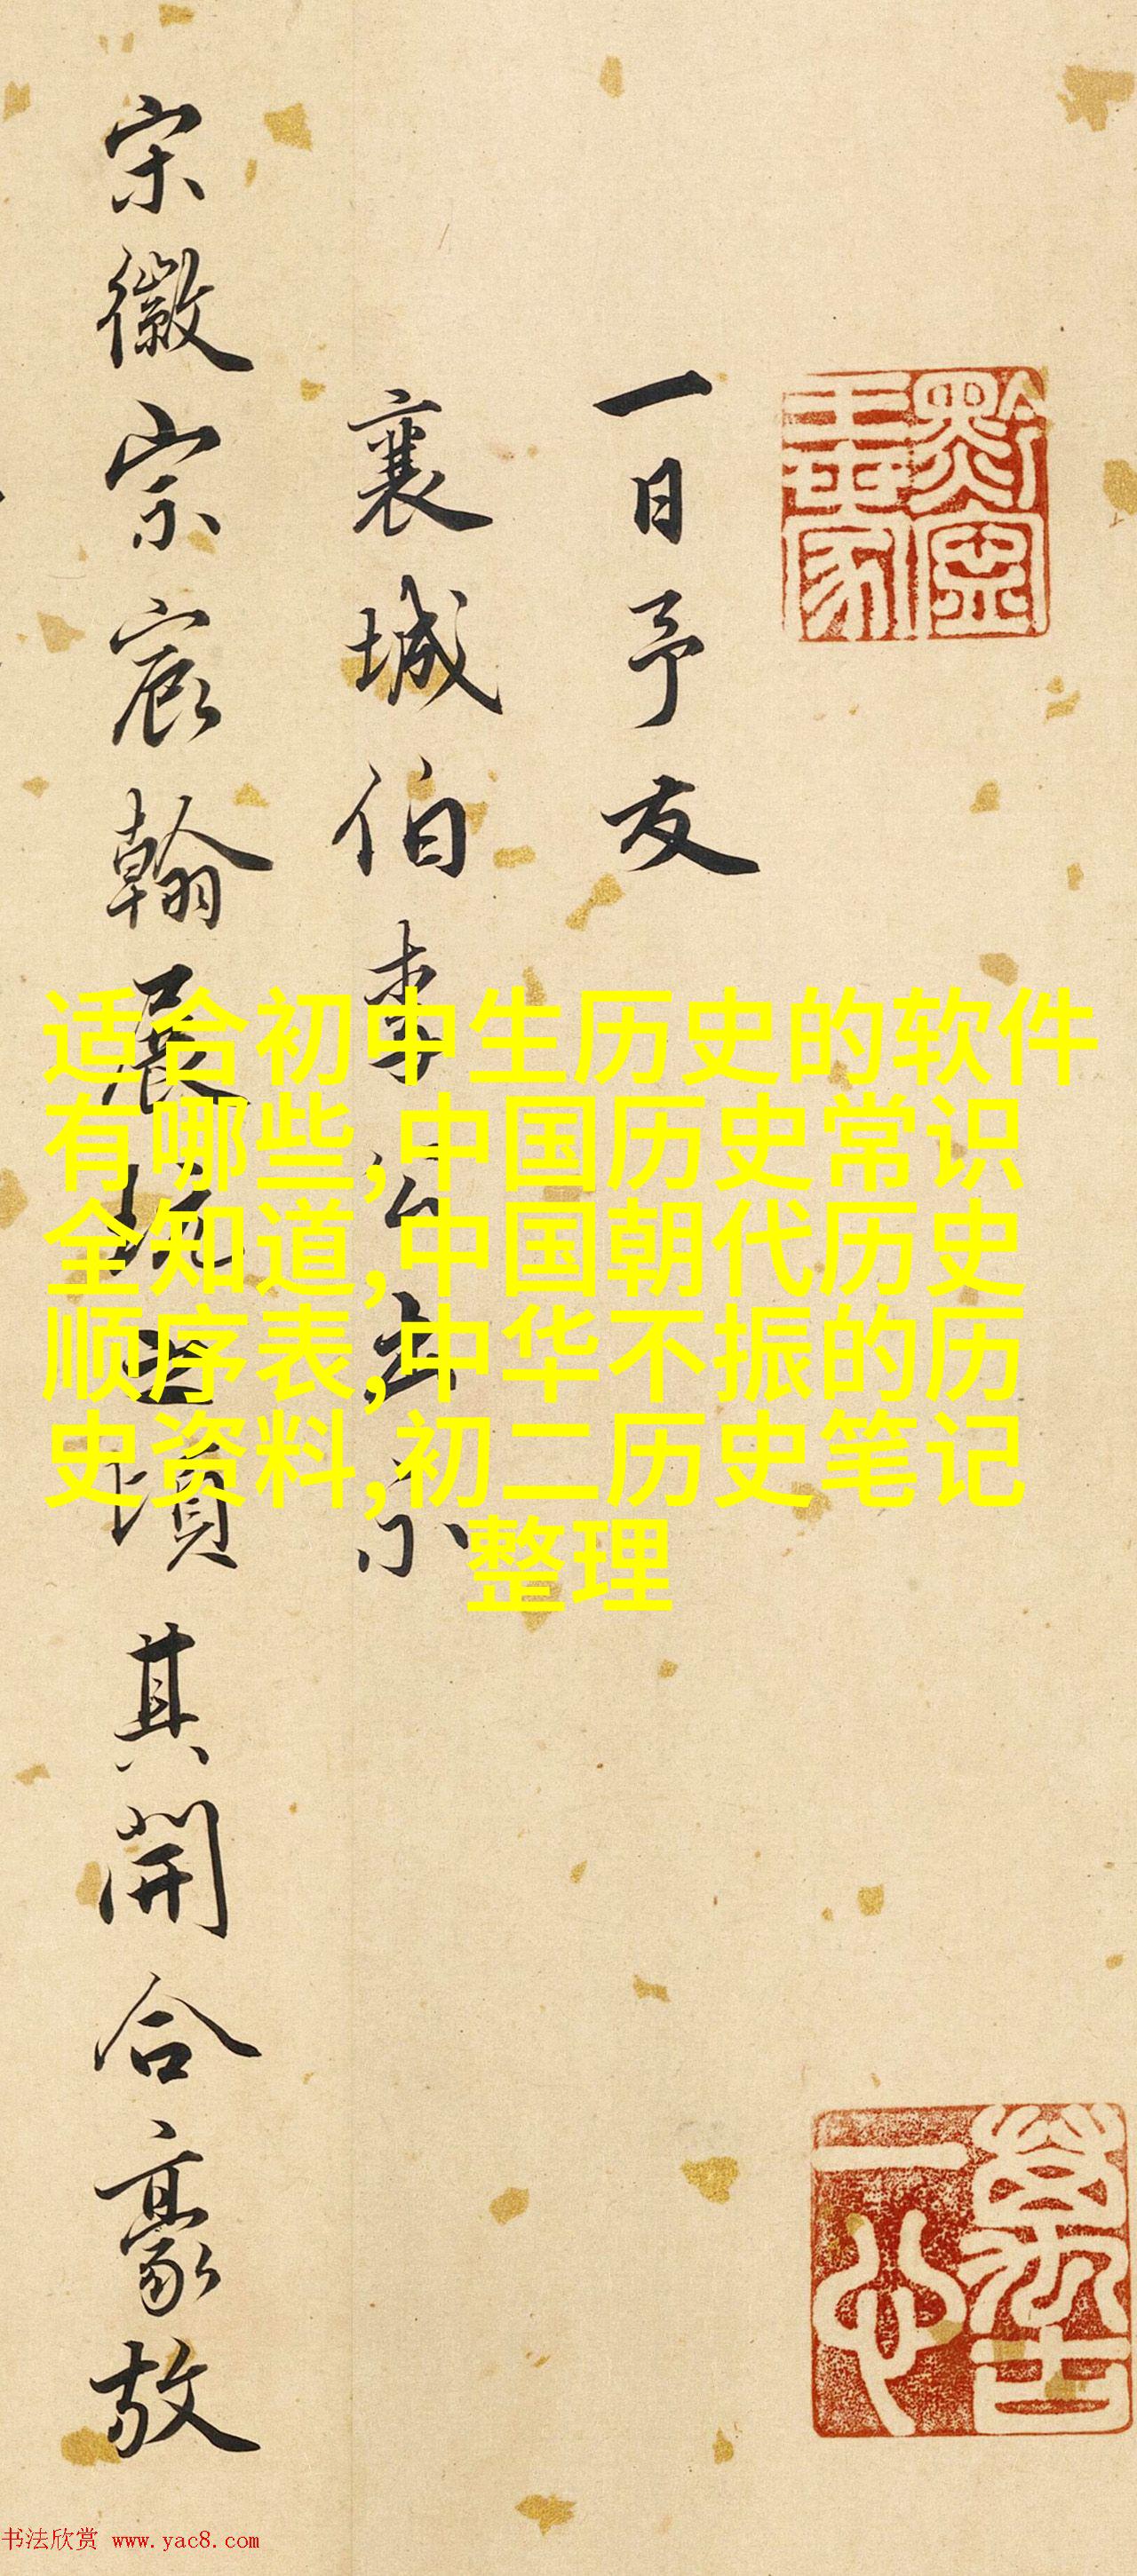 一日予友
襄城伯李公出示
宋徽宗宸翰展玩之頃其開合豪放
适合初中生历史的软件
有哪些,中国历史常识
全知道,中国朝代历史
顺序表,中华不振的历
史资料,初二历史笔记
整理
书法欣赏 www.yac8.com